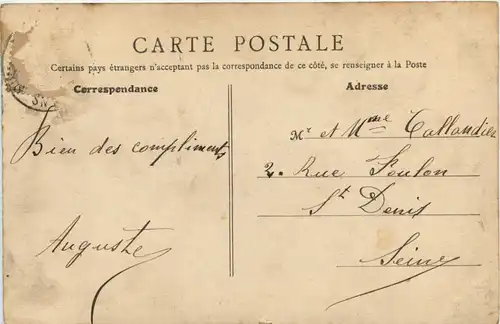 CARTE POSTALE
Certains pays étrangers n'acceptant pas la correspondance de ce côté, se renseigner à la Poste
Correspondance
Bien des compliments
Auguste
Adresse
Mr et Mme Tallandier
2. Rue Toulon
St Denis
Seine